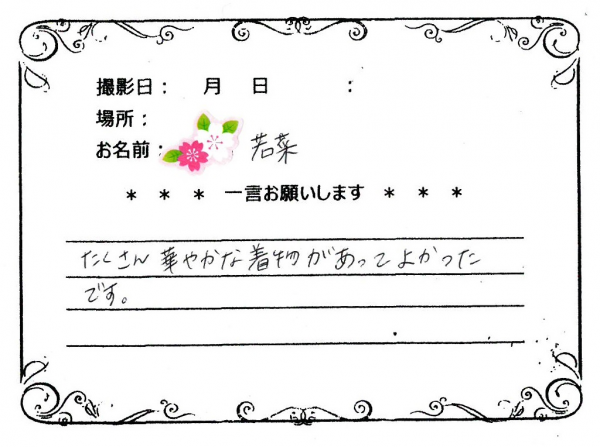 撮影日： 月 日 ：
場所：
お名前： 若菜
* * * 一言お願いします * * *
たくさん華やかな着物があってよかった
です。